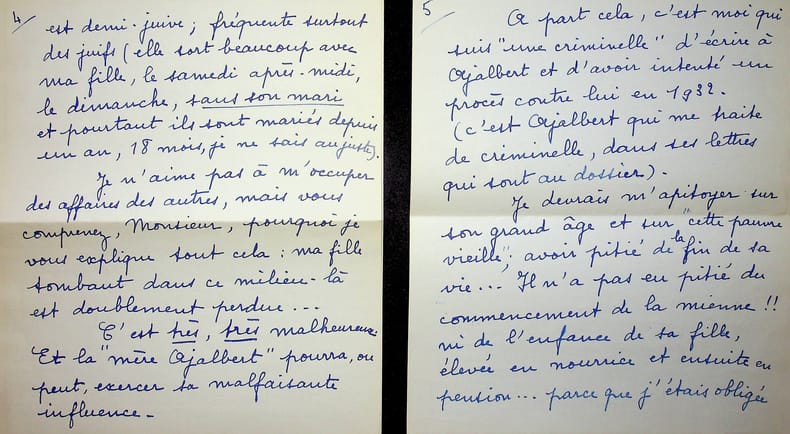 4/
est demi-juive ; fréquente surtout
des juifs (elle sort beaucoup avec
ma fille, le samedi après-midi,
le dimanche, sans son mari
et pourtant ils sont mariés depuis
un an, 18 mois, je ne sais au juste).
Je n'aime pas à m'occuper
des affaires des autres, mais vous
comprenez, Monsieur, pourquoi je
vous explique tout cela : ma fille
tombant dans ce milieu-là
est doublement perdue...
C'est très, très malheureux.
Et la "mère Ajalbert" pourra, ou
peut, exercer sa malfaisante
influence.-
5/
A part cela, c'est moi qui
suis "une criminelle" d'écrire à
Ajalbert et d'avoir intenté un
procès contre lui en 1932.
(c'est Ajalbert qui me traite
de criminelle, dans ses lettres
qui sont au dossier).
Je devrais m'apitoyer sur
son grand âge et sur "cette pauvre
vieille", avoir pitié de la fin de sa
vie... Il n'a pas eu pitié du
commencement de la mienne !!
ni de l'enfance de sa fille,
élevée en nourrice et ensuite en
pension... parce que j'étais obligée